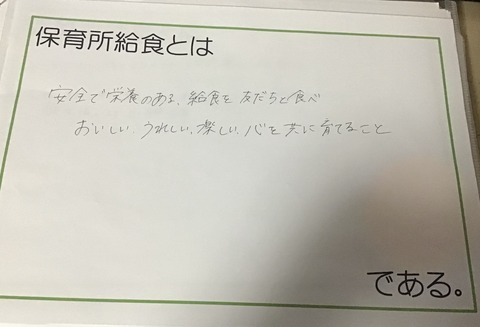 保育所給食とは
安全で栄養のある、給食を友だちと食べ
おいしい、うれしい、楽しい、心を共に育てること
である。